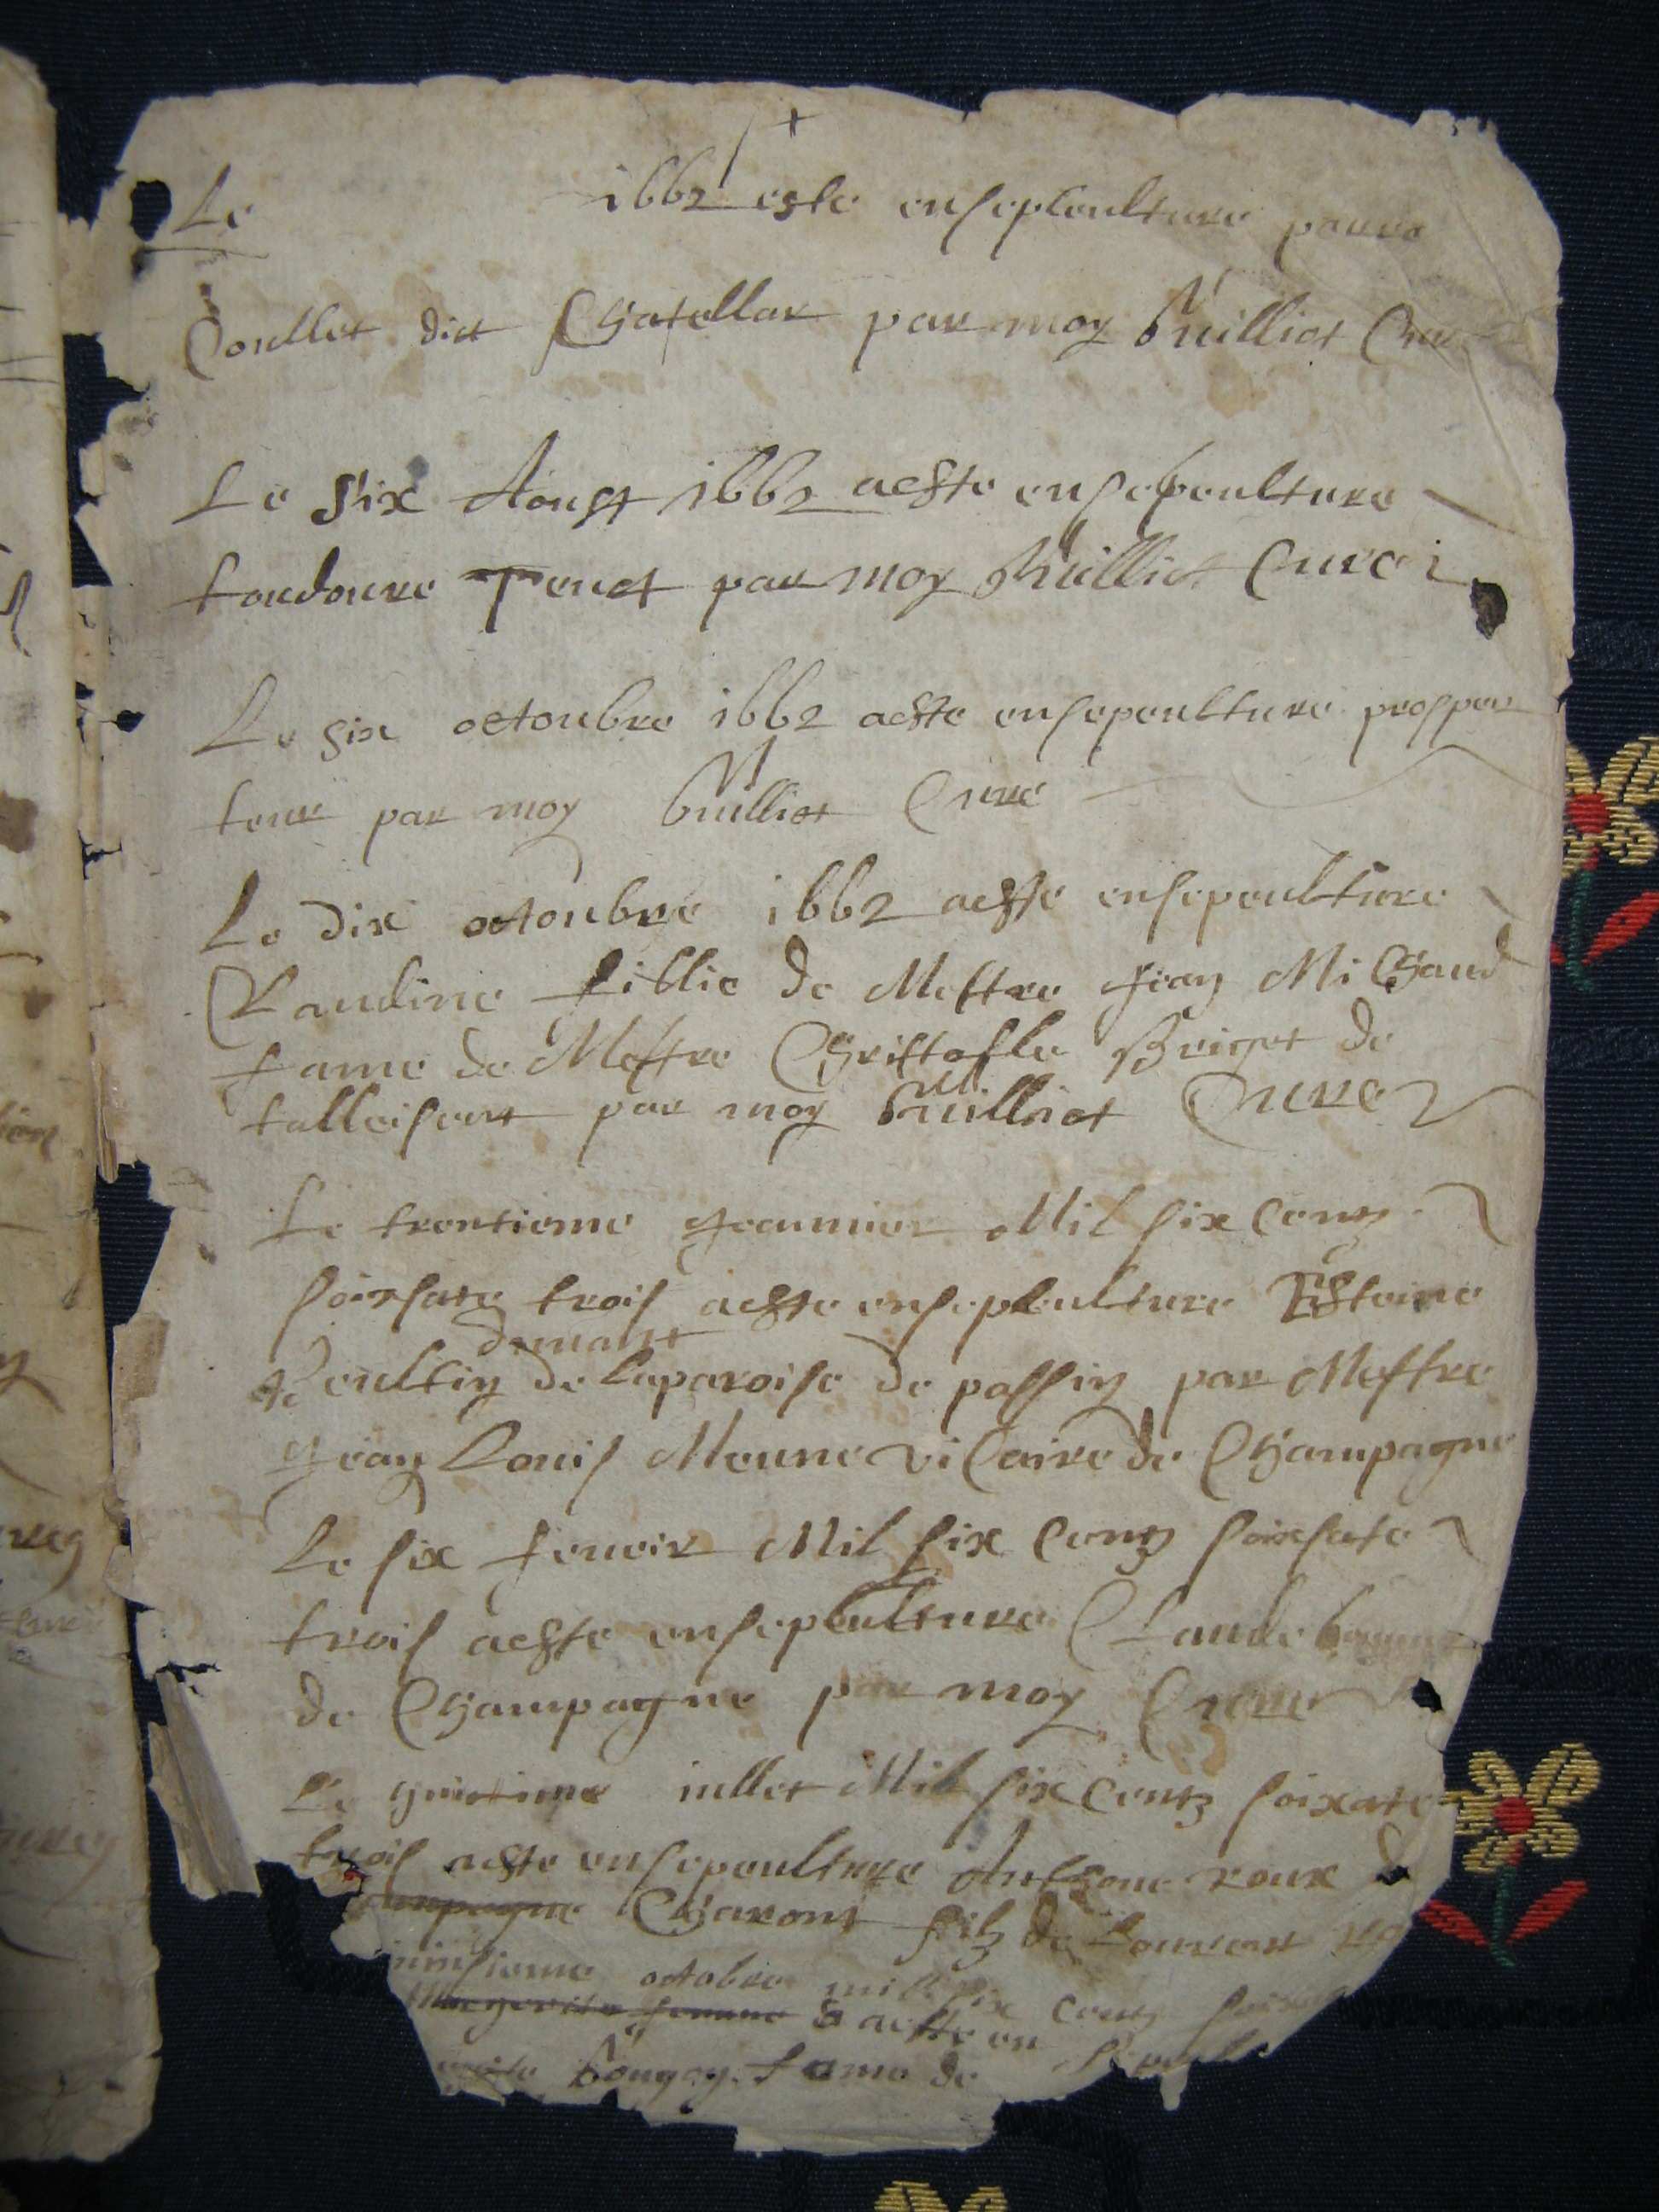 Le 1662 este ensepleulture
Coullet dict Chatellar par moy Vuilliot Cure
Le Six Aoust 1662 aeste ensepeoulture
par moy Vuilliot Cure
Le six octoubre 1662 aeste ensepeoulture prosper
teur par moy Vuilliot Cure
Le dix octoubre 1662 aeste ensepeoulture
Claudine fillie de Mestre Jean Michaud
fame de Mestre Christofle de
par moy Vuilliot Cure
Le trentieme Jeanuier Mil six Centz
soixsate trois aeste ensepleulture Esteine
demant
de laparoise de passin par Mestre
Jean Louis Meune vicaire de Champagne
Le six feuoir Mil six Centz soixsate
trois aeste ensepleulture Claude
de Champagne par moy Cure
Le iullet Mil six Centz soixate
trois aeste ensepeoulture Anthoine roux
Charont filz de
octobre mille six Centz
femme aeste en
fame de